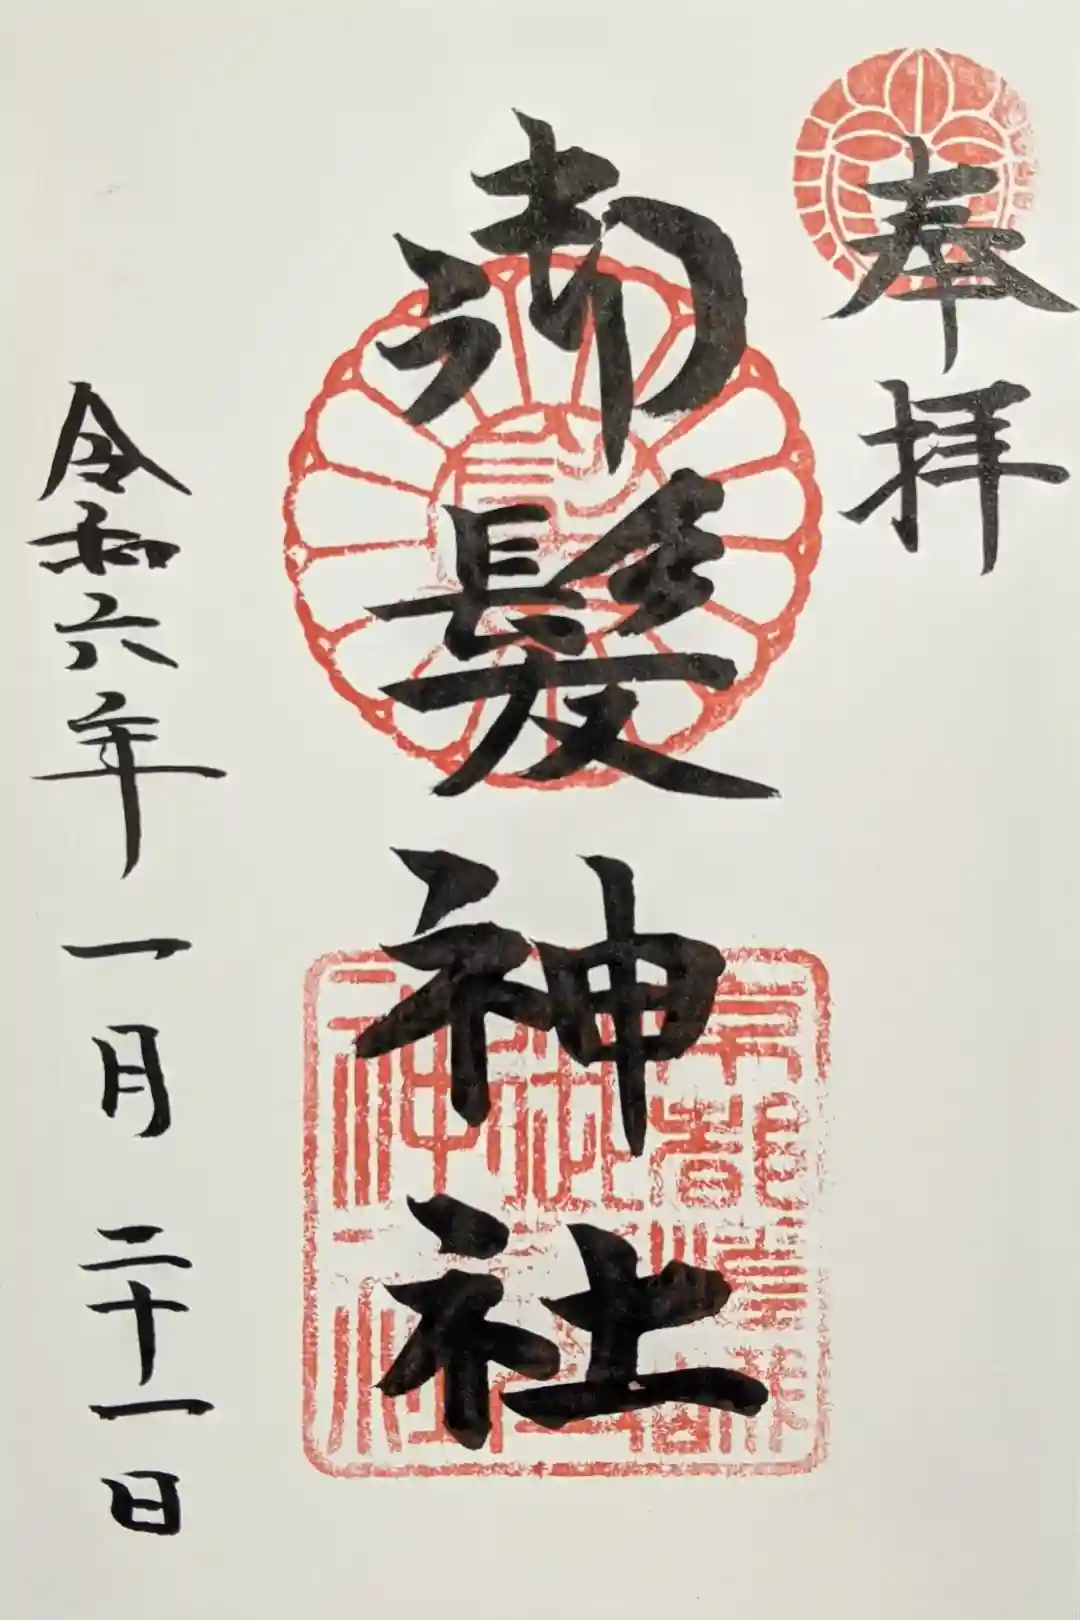 奉拝
御髪神社
令和六年一月二十一日